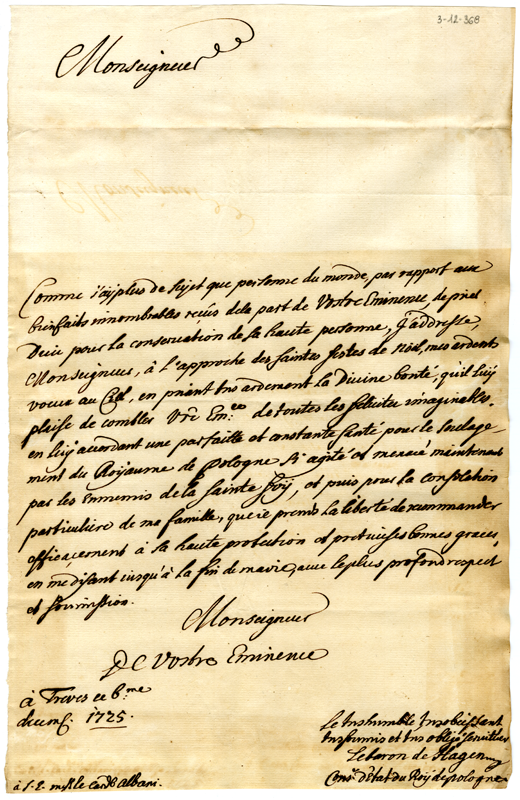 3-12-368
Monseigneur
Comme j'ay plus de sujet que personne du monde, par rapport aux
bienfaits innombrables recûs de la part de Vostre Eminence, de prier
Dieu pour la conservation de sa haute personne, j'addresse,
Monseigneur, à l'approche des saintes festes de Noël, mes ardents
voeux au Ciel, en priant tres ardement la Divine bonté, qu'il luy
plaise de combler Vre Em.ce de toutes les felicités imaginables,
en luy acordant une parfaite et constante santé pour le soulage-
ment du Royaume de Pologne si agité et menacé maintenant
par les Ennemis de la sainte foy, et puis pour la consolation
particuliere de ma famille, que ie prends la liberté de recommander
efficacement à sa haute protection et pretieuses bonnes graces,
en me disant iusqu'à la fin de ma vie, avec le plus profond respect
et soumission.
Monseigneur
De Vostre Eminence
à Treves ce 6.me
decemb. 1725.
Le tres humble tres obeissant
tres soumis et tres obligé serviteur
Le baron de Hagen
Cons.r d'Etat du Roy de pologne
à S. E. msg.r le card.l Albani.